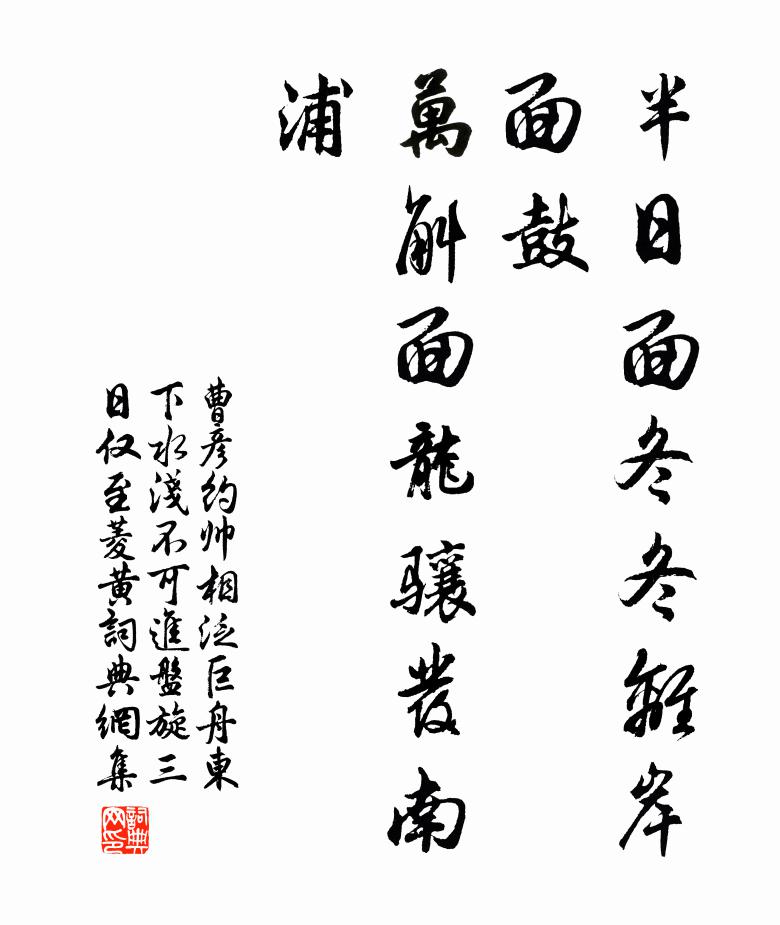 半日面冬冬離岸
面鼓
萬斛面龍驤發南
浦
曹彦約帅相泛巨舟東
下水淺不可進盤旋三
日仅至菱黄詞典網集
詞典
网印